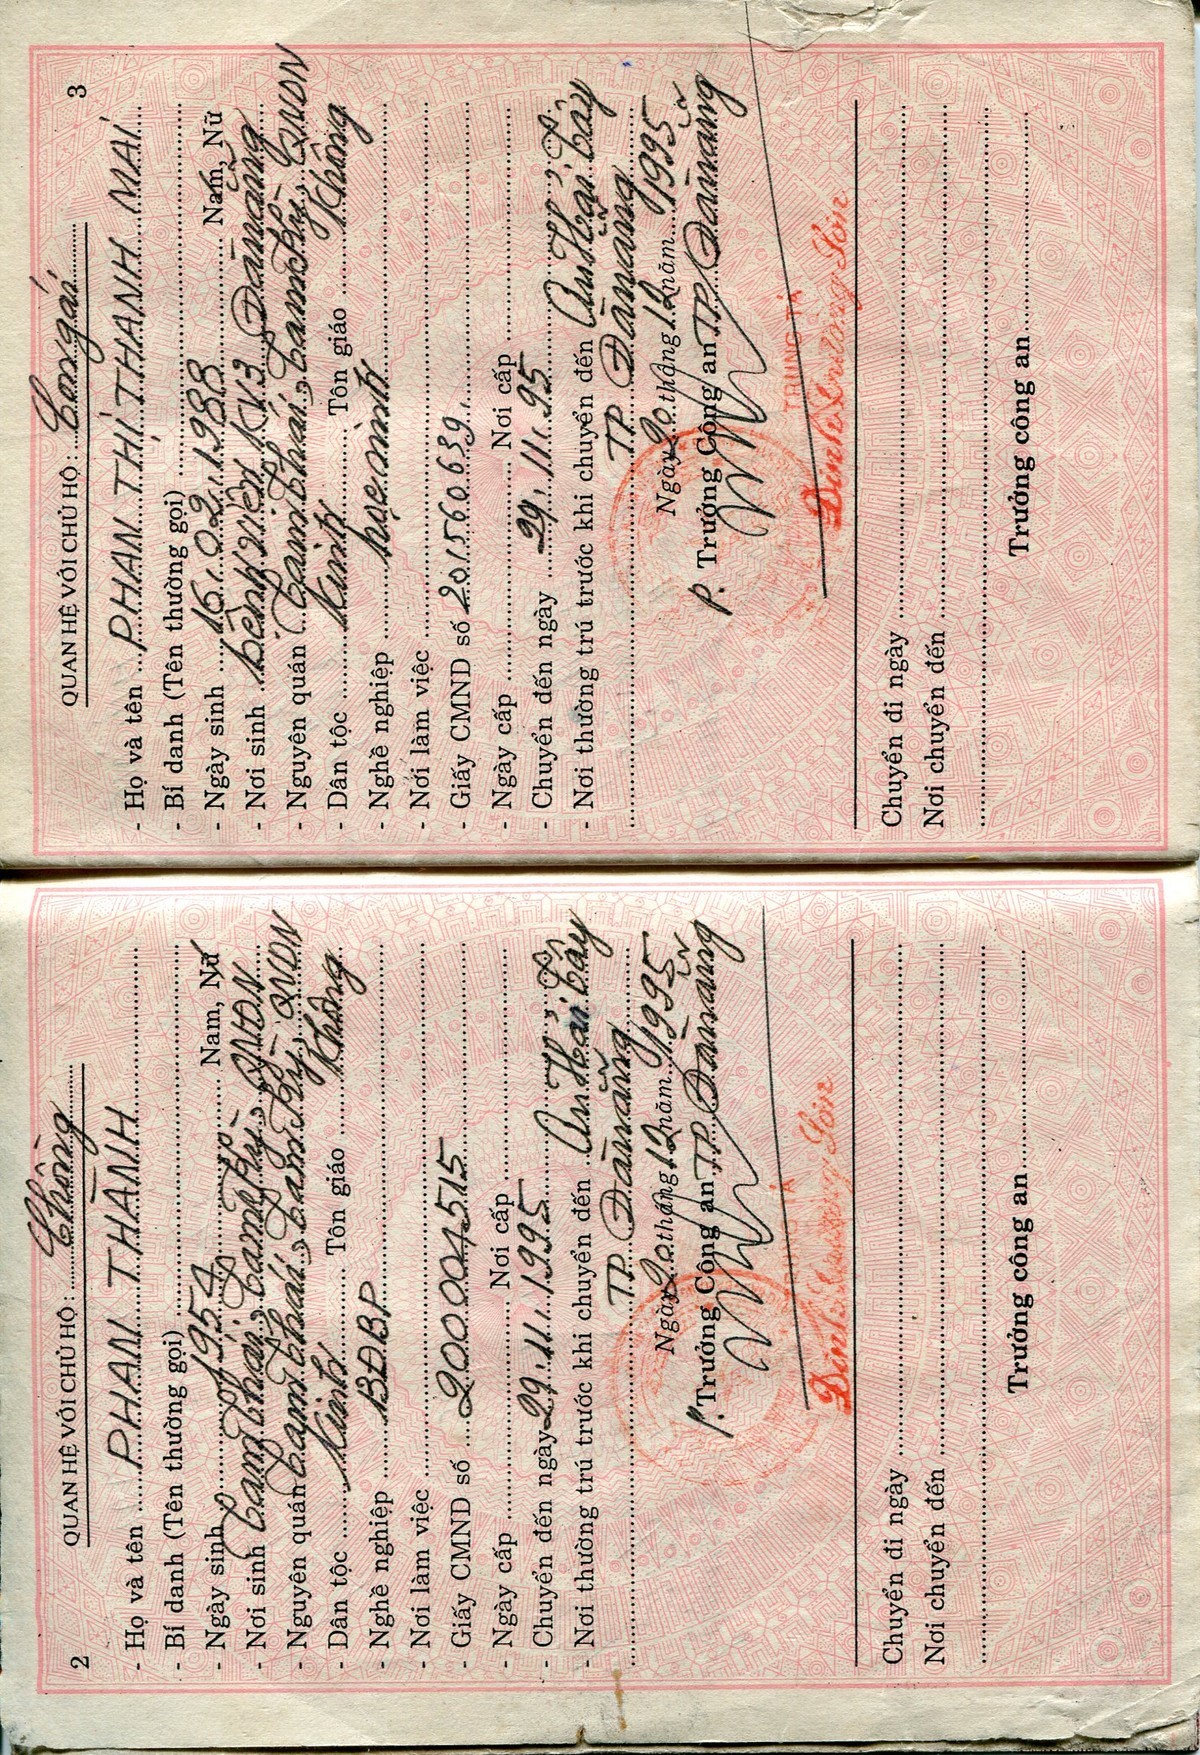 2
QUAN HỆ VỚI CHỦ HỘ : Chồng
- Họ và tên PHAN THÀNH
- Bí danh (Tên thường gọi)
- Ngày sinh 1954 Nam, Nữ
- Nơi sinh Tam thái, Tam Kỳ, QNĐN
- Nguyên quán Tam thái, Tam Kỳ, QNĐN
- Dân tộc Kinh Tôn giáo Không
- Nghề nghiệp BĐBP
- Nơi làm việc
- Giấy CMND số 200004515
- Ngày cấp Nơi cấp
- Chuyển đến ngày 29.11.1995
- Nơi thường trú trước khi chuyển đến An Hải tây
TP Đà nẵng
Ngày 20 tháng 12 năm 1995
P. Trưởng Công an TP Đà nẵng
Đinh Trường Sơn
Chuyển đi ngày
Nơi chuyển đến
Trưởng công an
3
QUAN HỆ VỚI CHỦ HỘ : Con gái
- Họ và tên PHAN THỊ THANH MAI
- Bí danh (Tên thường gọi)
- Ngày sinh 16.02.1988 Nam, Nữ
- Nơi sinh bệnh viện KV3 Đà nẵng
- Nguyên quán Tam thái, Tam Kỳ, QNĐN
- Dân tộc Kinh Tôn giáo Không
- Nghề nghiệp học sinh
- Nơi làm việc
- Giấy CMND số 201560639.
- Ngày cấp Nơi cấp
- Chuyển đến ngày 29.11.95
- Nơi thường trú trước khi chuyển đến An Hải tây
TP Đà nẵng
Ngày 20 tháng 12 năm 1995
P. Trưởng Công an TP Đà nẵng
TRUNG TÁ
Đinh Trường Sơn
Chuyển đi ngày
Nơi chuyển đến
Trưởng công an